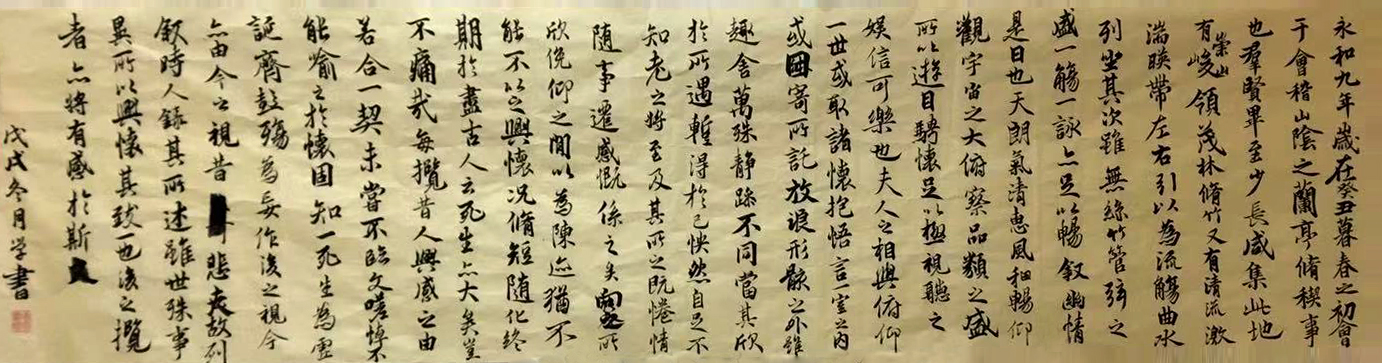 永和九年歲在癸丑暮春之初會
于會稽山陰之蘭亭脩稧事
也羣賢畢至少長咸集此地
有崇山峻領茂林脩竹又有清流激
湍暎帶左右引以為流觴曲水
列坐其次雖無絲竹管弦之
盛一觴一詠亦足以暢敘幽情
是日也天朗氣清惠風和暢仰
觀宇宙之大俯察品類之盛
所以遊目騁懷足以極視聽之
娛信可樂也夫人之相與俯仰
一世或取諸懷抱悟言一室之內
或因寄所託放浪形骸之外雖
趣舍萬殊靜躁不同當其欣
於所遇蹔得於己怏然自足不
知老之將至及其所之既惓情
隨事遷感慨係之矣向之所
欣俛仰之間以為陳迹猶不
能不以之興懷況脩短隨化終
期於盡古人云死生亦大矣豈
不痛哉每攬昔人興感之由
若合一契未嘗不臨文嗟悼不
能喻之於懷固知一死生為虛
誕齊彭殤為妄作後之視今
亦由今之視昔悲夫故列
敘時人錄其所述雖世殊事
異所以興懷其致一也後之攬
者亦將有感於斯文
戊戌冬月学書